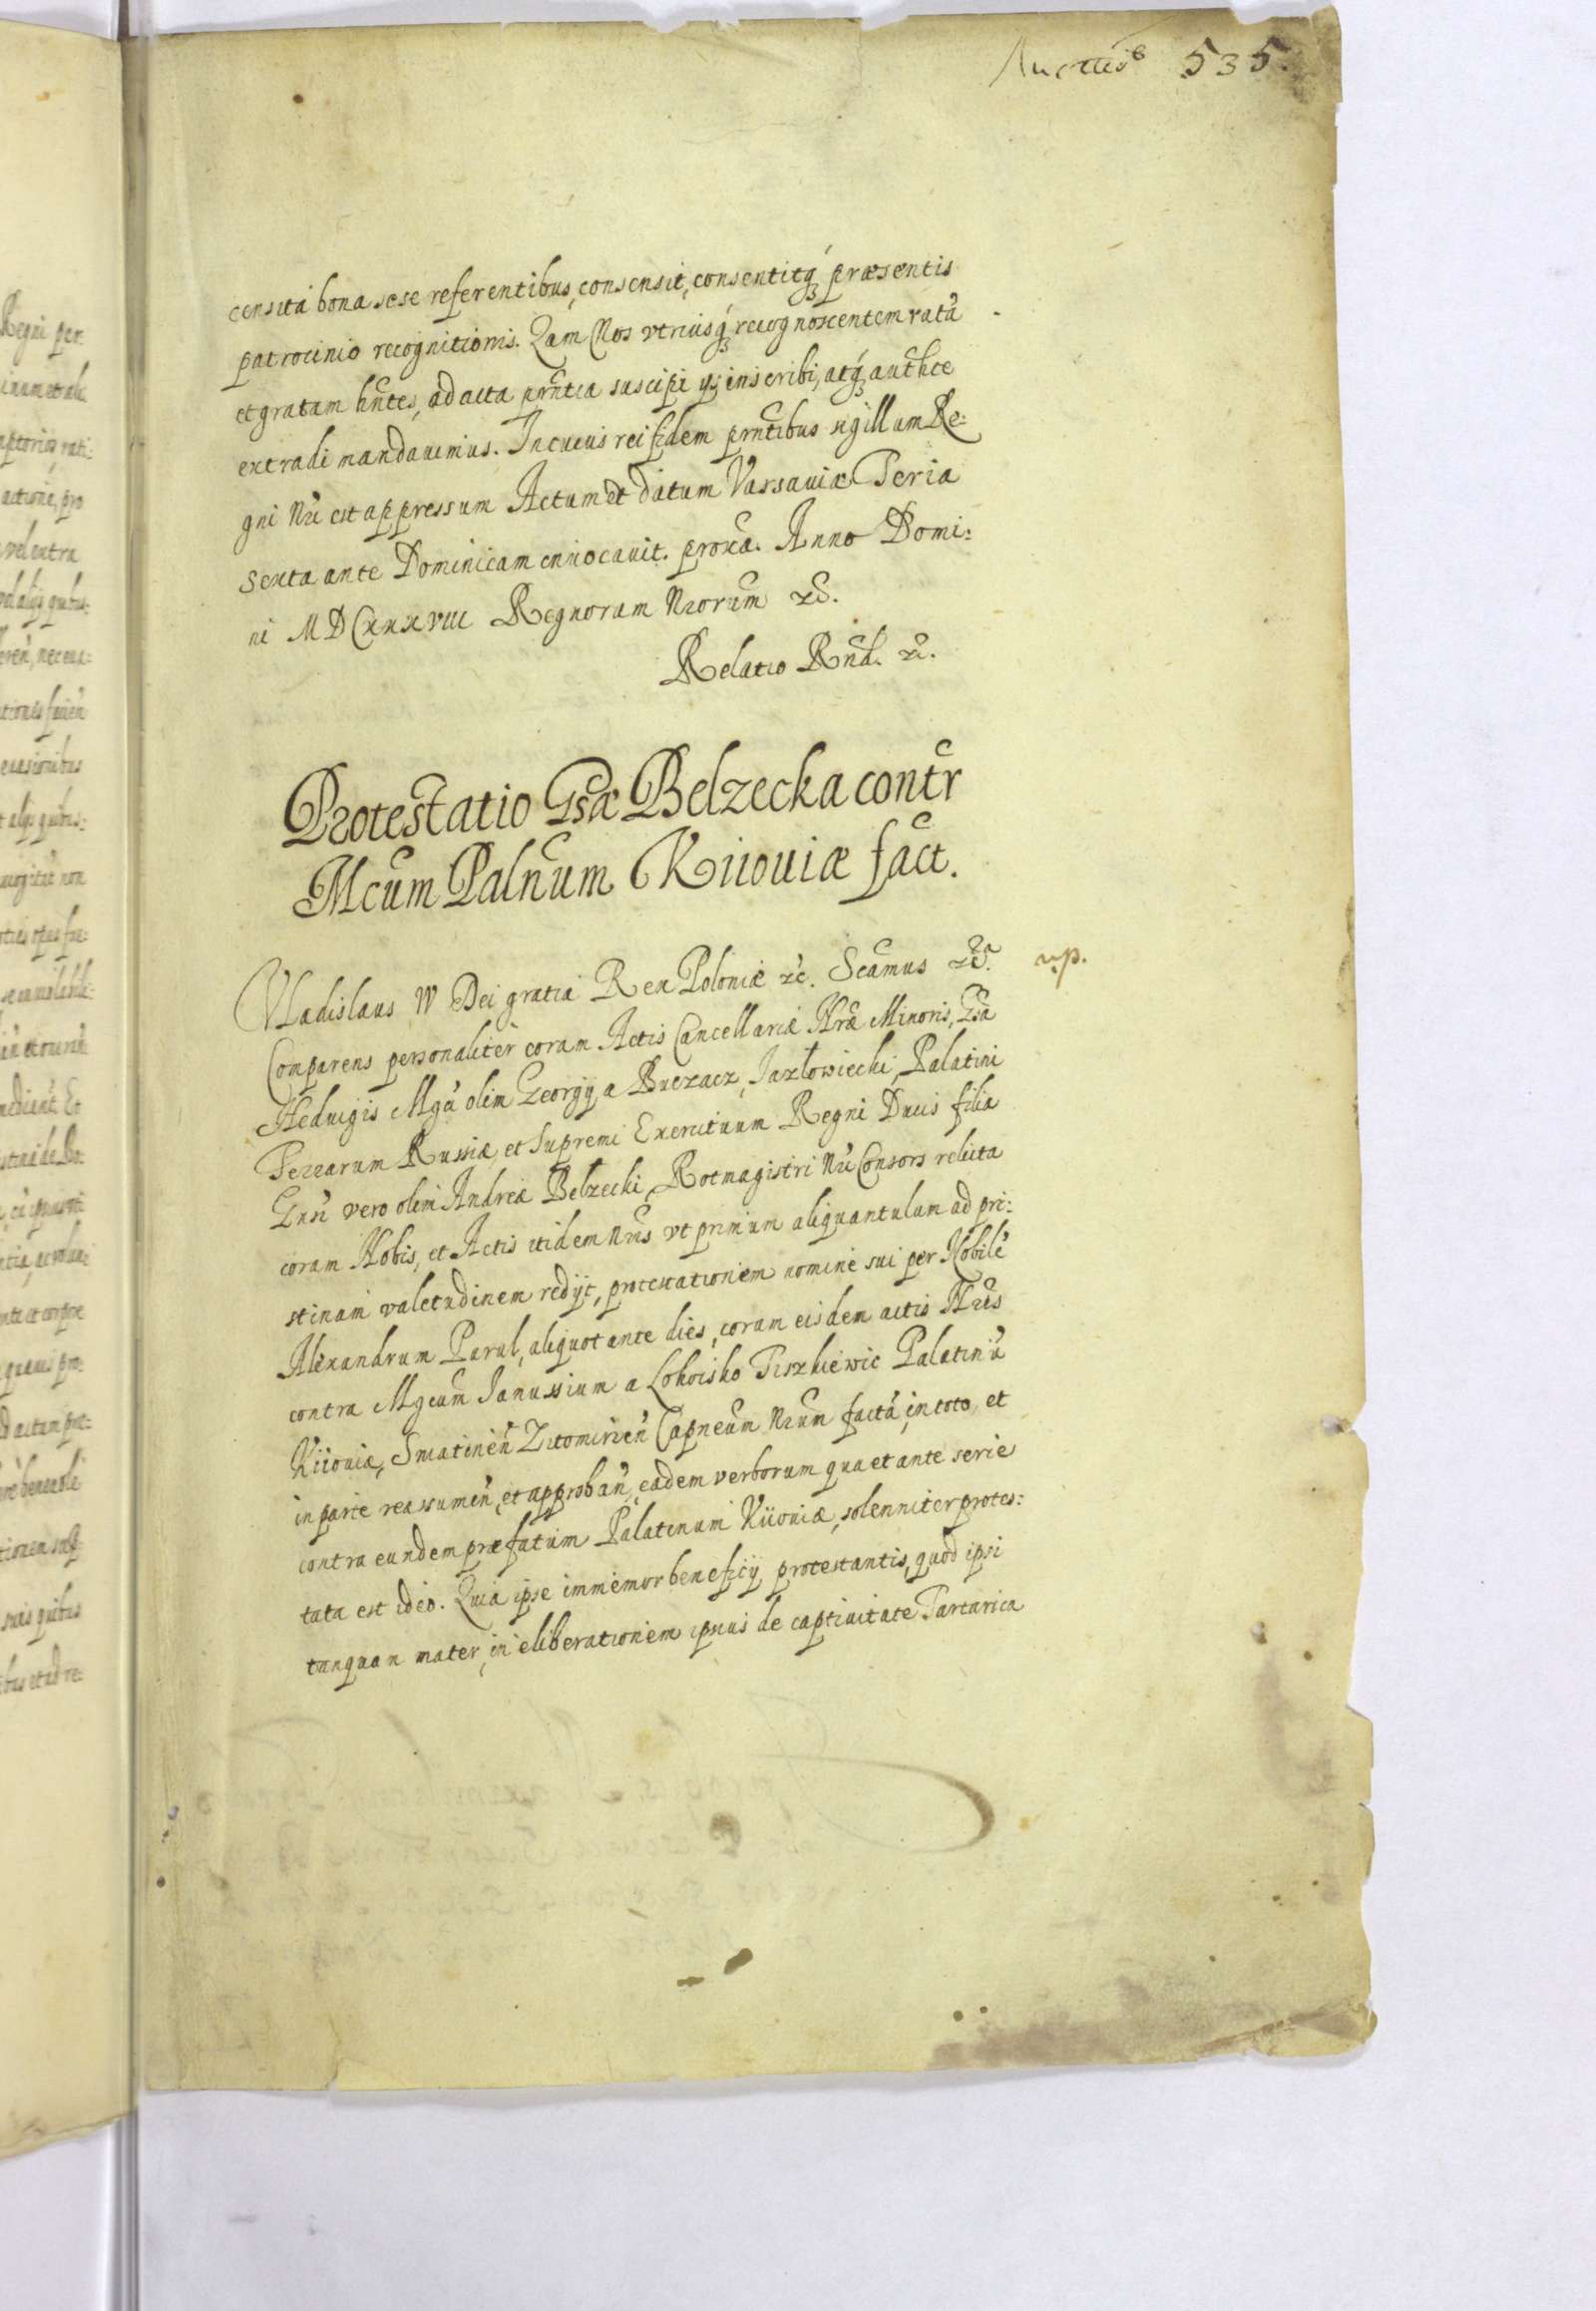 535.
censita bona sese referentibus, consensit, consentitq₃ præsentis
patrocinio recognitionis. Qam Nos vtriusq₃ recognoscentem ratã
et gratam hñtes, ad acta prñtia suscipi ys₃ inscribi, atq₃ authce
extradi mandauimus. In cuius rei fidem prñtibus sigillum Re:
gni Nri est appressum Actum et datum Varsauiæ Feria
Sexta ante Dominicam inuocauit. proxa. Anno Domi:
ni MDCxxxviii Regnorum Nrorum &c.
Relatio Rnd. &c.
Protestatio Gsæ Belzecka contr
Mcum Palnum Kiiouiæ fact.
Vladislaus IV Dei gratia Rex Poloniæ &c. Scamus &c. np.
Comparens personaliter coram Actis Cancellariæ Nræ Minoris, Gsa
Heduigis Mgci olim Georgij a Buczacz, Jazłowiecki, Palatini
Terrarum Russiæ, et Supremi Exercituum Regni Ducis filia
Gnsi vero olim Andreæ Bełzecki, Rotmagistri Nri Consors relicta
coram Nobis, et Actis itidem Nris vt primum aliquantulum ad pri:
stinam valetudinem redijt, protestationem nomine sui per Nobilẽ
Alexandrum Parul, aliquot ante dies, coram eisdem actis Nris
contra Mgcum Janussium a Lohoisko Tiszkiewic Palatinũ
Kiiouiæ, Sniatinẽn Zitomiriẽn Capneum Nrum factã, in toto, et
in parte reassumẽn, et approbañ, eadem verborum qua et ante serie
contra eundem præfatum Palatinum Kiiouiæ, solenniter protes:
tata est ideo. Quia ipse immemor beneficij protestantis, quod ipsi
tanquan mater, in eliberationem ipsius de captiuitate Tartarica